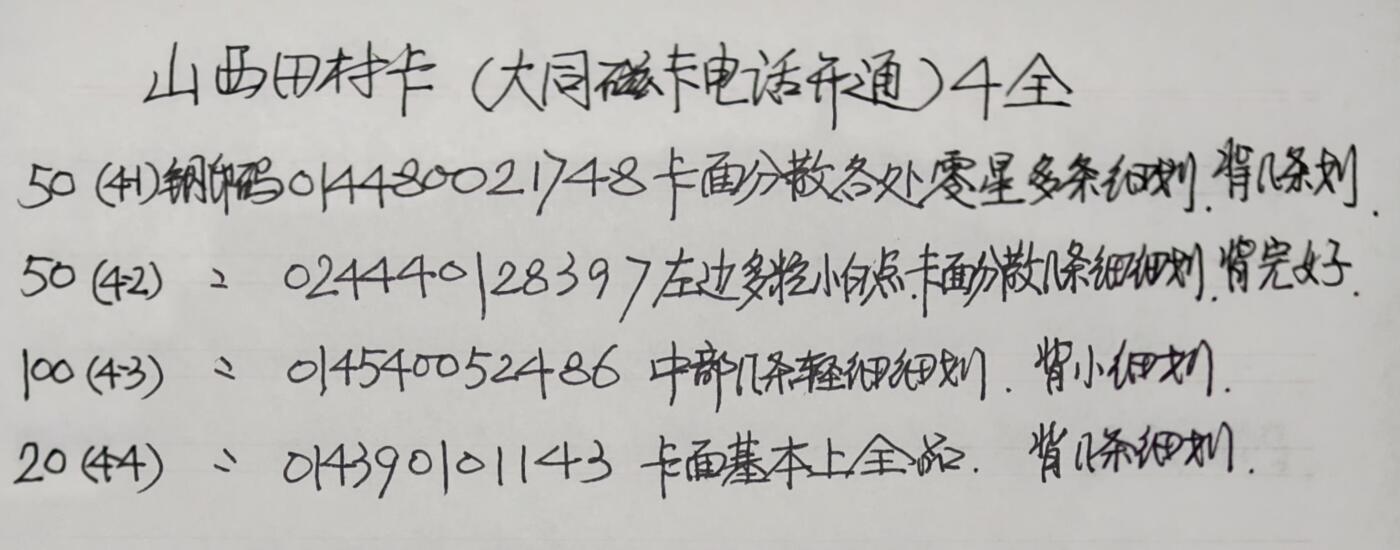 山西田村卡（大同磁卡电话开通）4全
50（4-1）钢印码014480021748卡面分散各处零星多条细划.背几条划.
50（4-2） 〃 024440128397左边多粒小白点.卡面分散几条细细划.背完好.
100（4-3） 〃 014540052486 中部几条轻细细划.背小细划.
20（4-4） 〃 014390101143 卡面基本上全品.背几条细划.